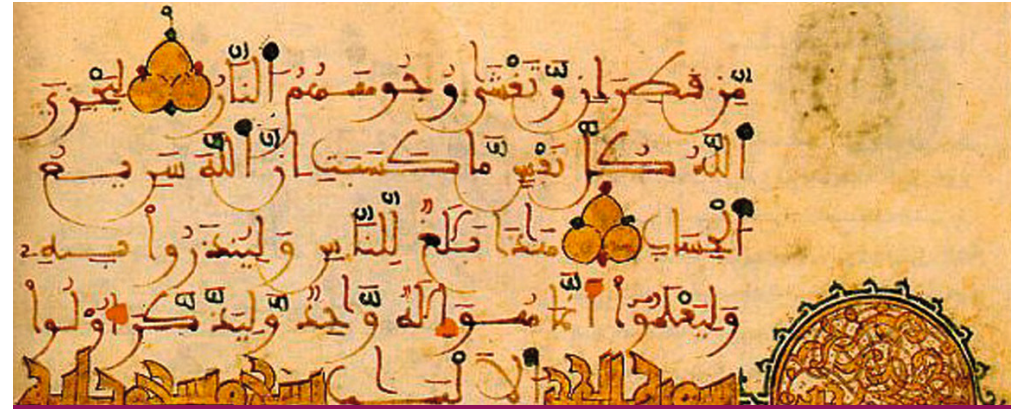 مِّن قَطِرَانٍ وَّتَغْشَىٰ وُجُوهَهُمُ النَّارُ لِيَجْزِيَ
اللَّهُ كُلَّ نَفْسٍ مَّا كَسَبَتِ انَّ اللَّهَ سَرِيعُ
الْحِسَابِ هَٰذَا بَلَٰغٌ لِّلنَّاسِ وَلِيُنذَرُوا بِهِ
وَلِيَعْلَمُوا أَنَّمَا هُوَ إِلَٰهٌ وَّاحِدٌ وَّلِيَذَّكَّرَ أُوْلُوا
الَالْبَابِ